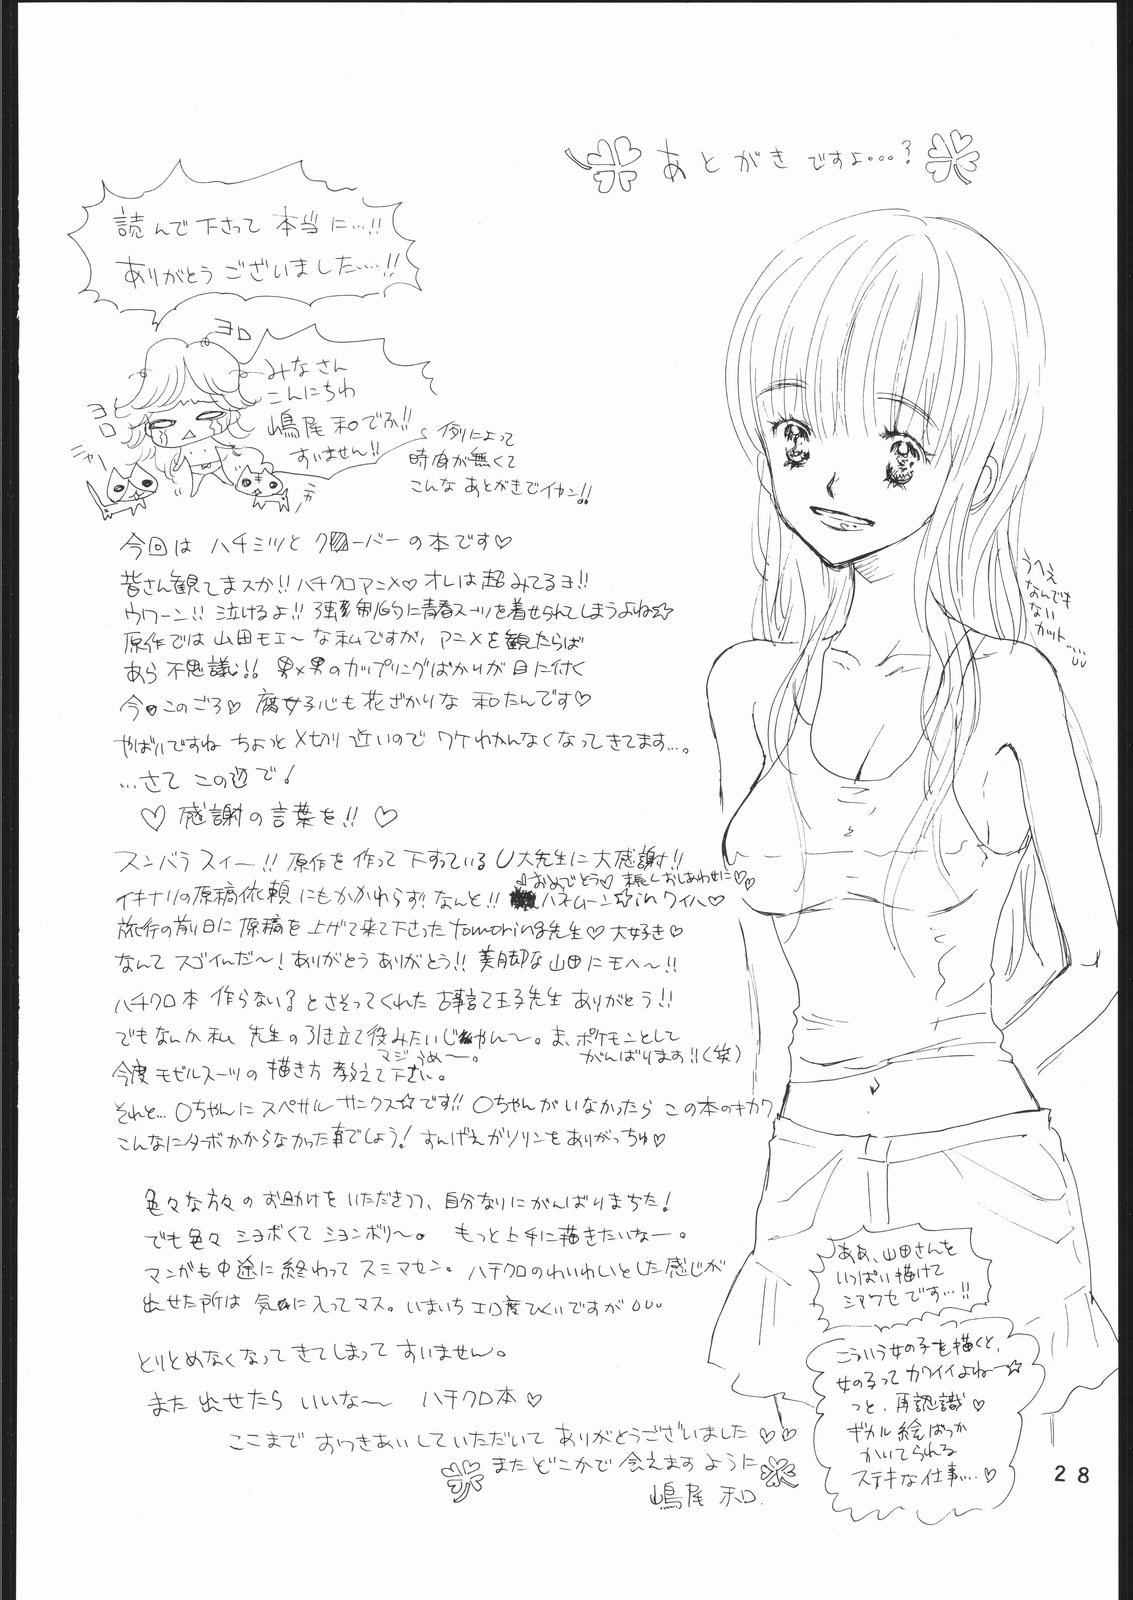 あとがきですよ…?
読んで下さって 本当に…!!
ありがとうございました…!!
ヨロ
ヨロ
ニャー
みなさん
こんにちわ
嶋尾 和です!!
すいません!!
例によって
時間が無くて
こんな あとがきでイカン!!
今回は ハチミツと クローバーの本です♡
皆さん観てまスか!! ハチクロアニメ♡ オレは超みてるヨ!!
ウワーン!! 泣けるよ!! 強制的に青春スーツを着せられてしまうよね☆
原作では 山田モエ〜な私ですが、アニメを観たらば
あら不思議!! 男×男のカップリングばかりが目に付く
今日このごろ♡ 腐女子心も花ざかりな 和たんです♡
やばいですね ちょっと〆切り近いので ワケわかんなくなってきてます…。
…さて この辺で!
♡ 感謝の言葉を!! ♡
スンバラスィー!! 原作を作って下すっている U大先生に大感謝!!
おめでとう♡ 末長くおしあわせに♡♡
イキナリの原稿依頼にもかかわらず!なんと!! ハネムーン☆in ワイハ♡
旅行の前日に原稿を上げて来て下さった tomoring先生♡大好き♡
なんてスゴイんだ〜!ありがとうありがとう!! 美脚な山田にモヘ〜!!
ハチクロ本 作らない?とさそってくれた 古事言て王子先生 ありがとう!!
でもなんか私 先生の引き立て役みたいじゃん〜。ま、ポケモンとして
がんばります!!(笑)
マジうめ〜。
今度モゼルスーツの描き方教えて下さい。
それと… 〇ちゃんにスペサルサンクス☆です!! 〇ちゃんがいなかったら この本のキカク
こんなにターボかからなかった事でしょう! すんげえガソリンをありがっちゅ♡
色々な方々の お助けをいただきつつ、自分なりにがんばりまちた!
でも色々 ショボくて ションボリ〜。 もっと上手に描きたいなー。
マンガも中途に終わって スミマセン。ハチクロのわいわいとした感じが
出せた所は 気に入ってマス。いまいち エロ度ひくいですが
とりとめなくなってきてしまって すいません。
また出せたら いいな〜 ハチクロ本♡
ここまで おつきあいしていただいて ありがとうございました♡♡
またどこかで 会えますように
嶋尾 和.
うへえ
なんでも
ない
カット……
ああ、山田さんを
いっぱい描けて
シアワセです…!!
こういう女の子を描くと、
女の子って カワイイよねー☆
っと、再認識♡
ギカル絵ばっか
かいてられる
ステキな仕事…♡
28